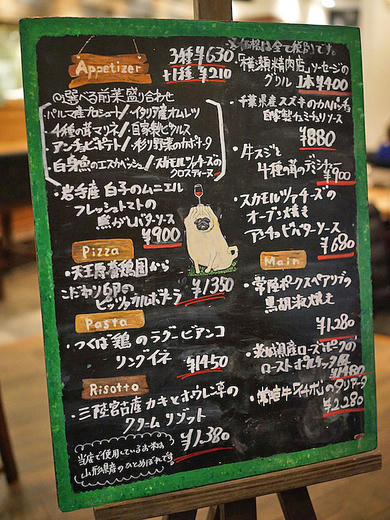 Appetizer
3種 ¥630
+1種 ¥210
◎選べる前菜盛り合わせ
・パルマ産プロシュート/・イタリア産オムレツ
・4種の茸マリネ/・自家製ピクルス
・アンチョビポテト/・彩り野菜のカポナータ
・白身魚のエスカベッシュ/・スカモルツァチーズの
クロスティーニ
・岩手産 白子のムニエル
フレッシュトマトの
焦がしバターソース
¥900
Pizza
・天王原養鶏園から
こだわり卵の
ピッツァカルボナーラ
¥1,350
Pasta
・つくば鶏のラグービアンコ
リングイネ
¥1450
Risotto
・三陸宮古産カキとホウレン草の
クリームリゾット
¥1,380
当店で使用しているお米は
山形県産のひとめぼれです。
※価格は全て税別です。
・「横瀬精肉店」ソーセージの
グリル 1本 ¥400
・千葉県産スズキのカルパッチョ
自家製カラミソース
¥880
・牛スジと
4種の茸のデミシチュー
¥900
・スカモルツァチーズの
オーブン焼き
アンチョビバターソース
¥680
Main
・常陸ポークスペアリブの
黒胡椒焼き
¥1,280
・茨城県産ローズポークの
ロースト
¥1480
・常陸牛「イチボ」のタリアータ
¥2,280